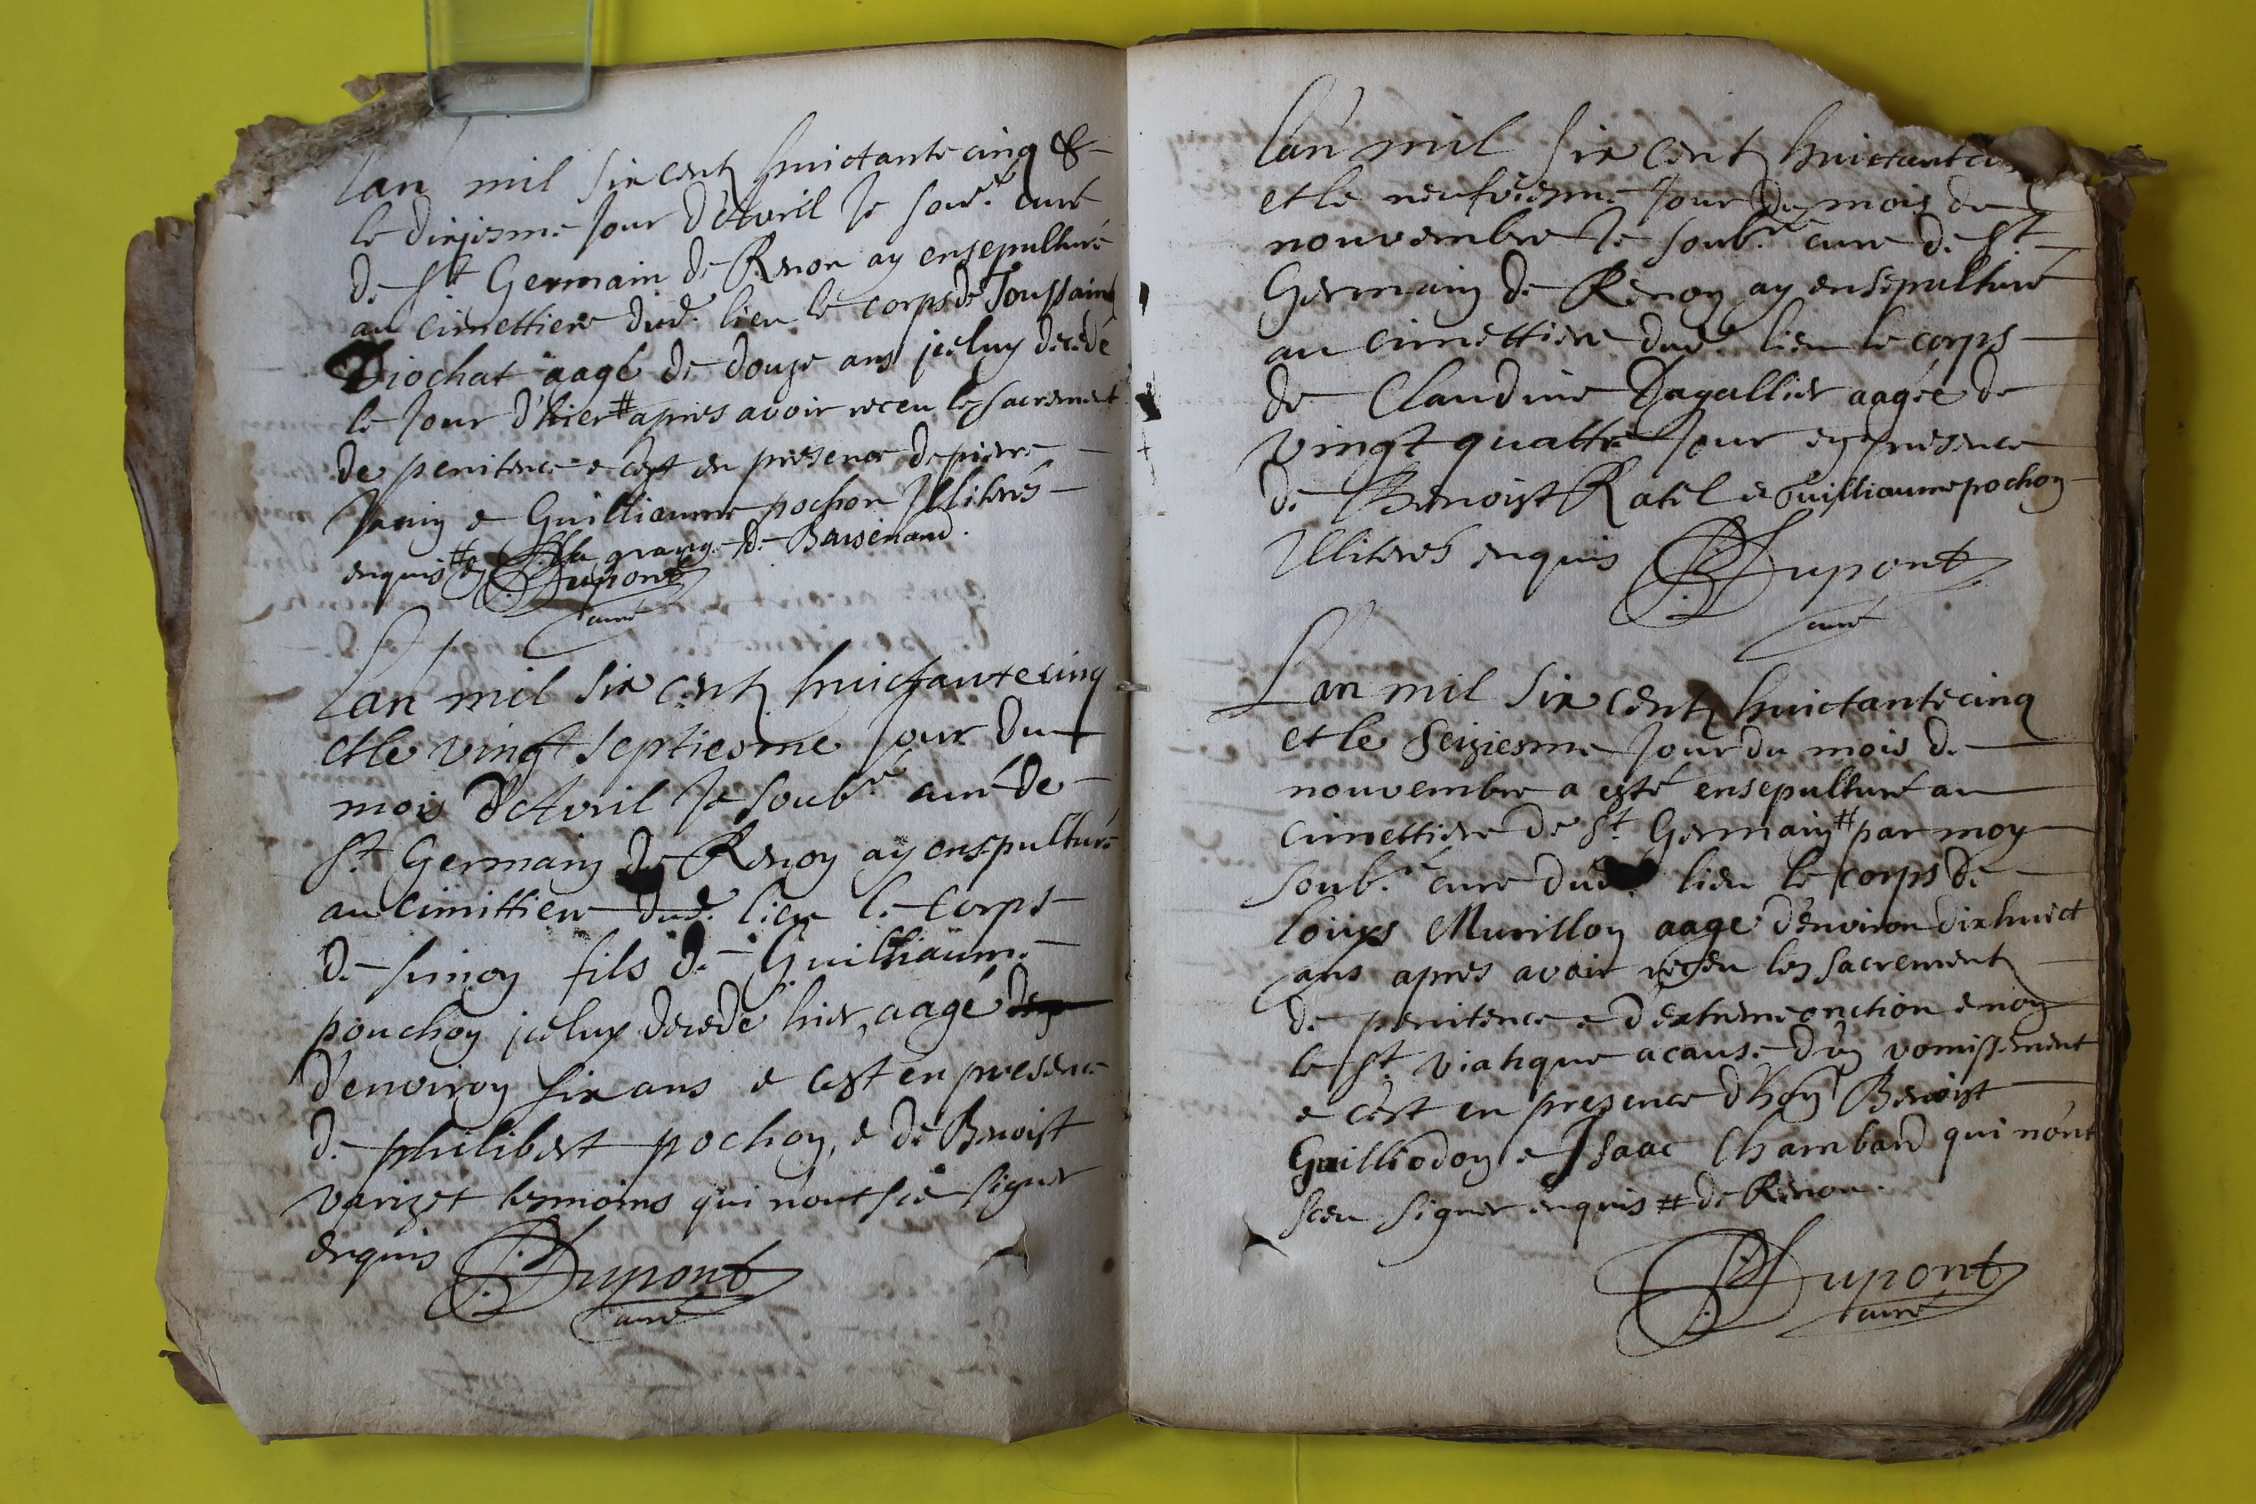 Lan mil six centz huictante cinq &
le dixiesme jour d'Avril Je soub.é curé
de St Germain de Renon ay ensepulturé
au cimettiere dud. lieu le corps de Toussaint
Diochat aagé de douze ans jceluy decedé
le jour d'hier # apres avoir receu le sacrement
de penitence e cest en presence de pierre
e Guilliaume pochon Illiterés
enquis # a la grange de Baisenand.
Dupont
curé
Lan mil six centz huictante cinq
et le vingt septiesme jour du
mois d'Avril Je soub.é curé de
St Germain de Renon ay ensepulturé
au cimittiere dud. lieu le corps
de simon fils de Guilliaume
pouchon jceluy decedé hier, aagé
d'environ six ans e cest en presence
de philibert pochon, e de Benoist
varizet tesmoins qui n'ont sceu signer
enquis
Dupont
curé
Lan mil six centz huictante
et le neufviesme jour du mois de
nouvembre Je soub.é curé de St
Germain de Renon ay ensepulturé
au cimettiere dud. lieu le corps
de Claudine Dagallier aagée de
vingt quattre jour en presence
de Benoist Ratel e Guilliaume pochon
Illiterés enquis
Dupont
curé
Lan mil six centz huictante cinq
et le seiziesme jour du mois de
nouvembre a esté ensepulturé au
cimettiere de St Germain # par moy
soub.é curé dud. lieu le corps de
Louys Murillon aagé d'environ dixhuict
ans apres avoir receu les sacrementz
de penitence e d'extreme onction e non
le St viatique a cause d'un vomissement
e cest en presence d'hon Benoist
Guilliodon e Isaac Chambard qui n'ont
sceu signer enquis # de Renon.
Dupont
curé